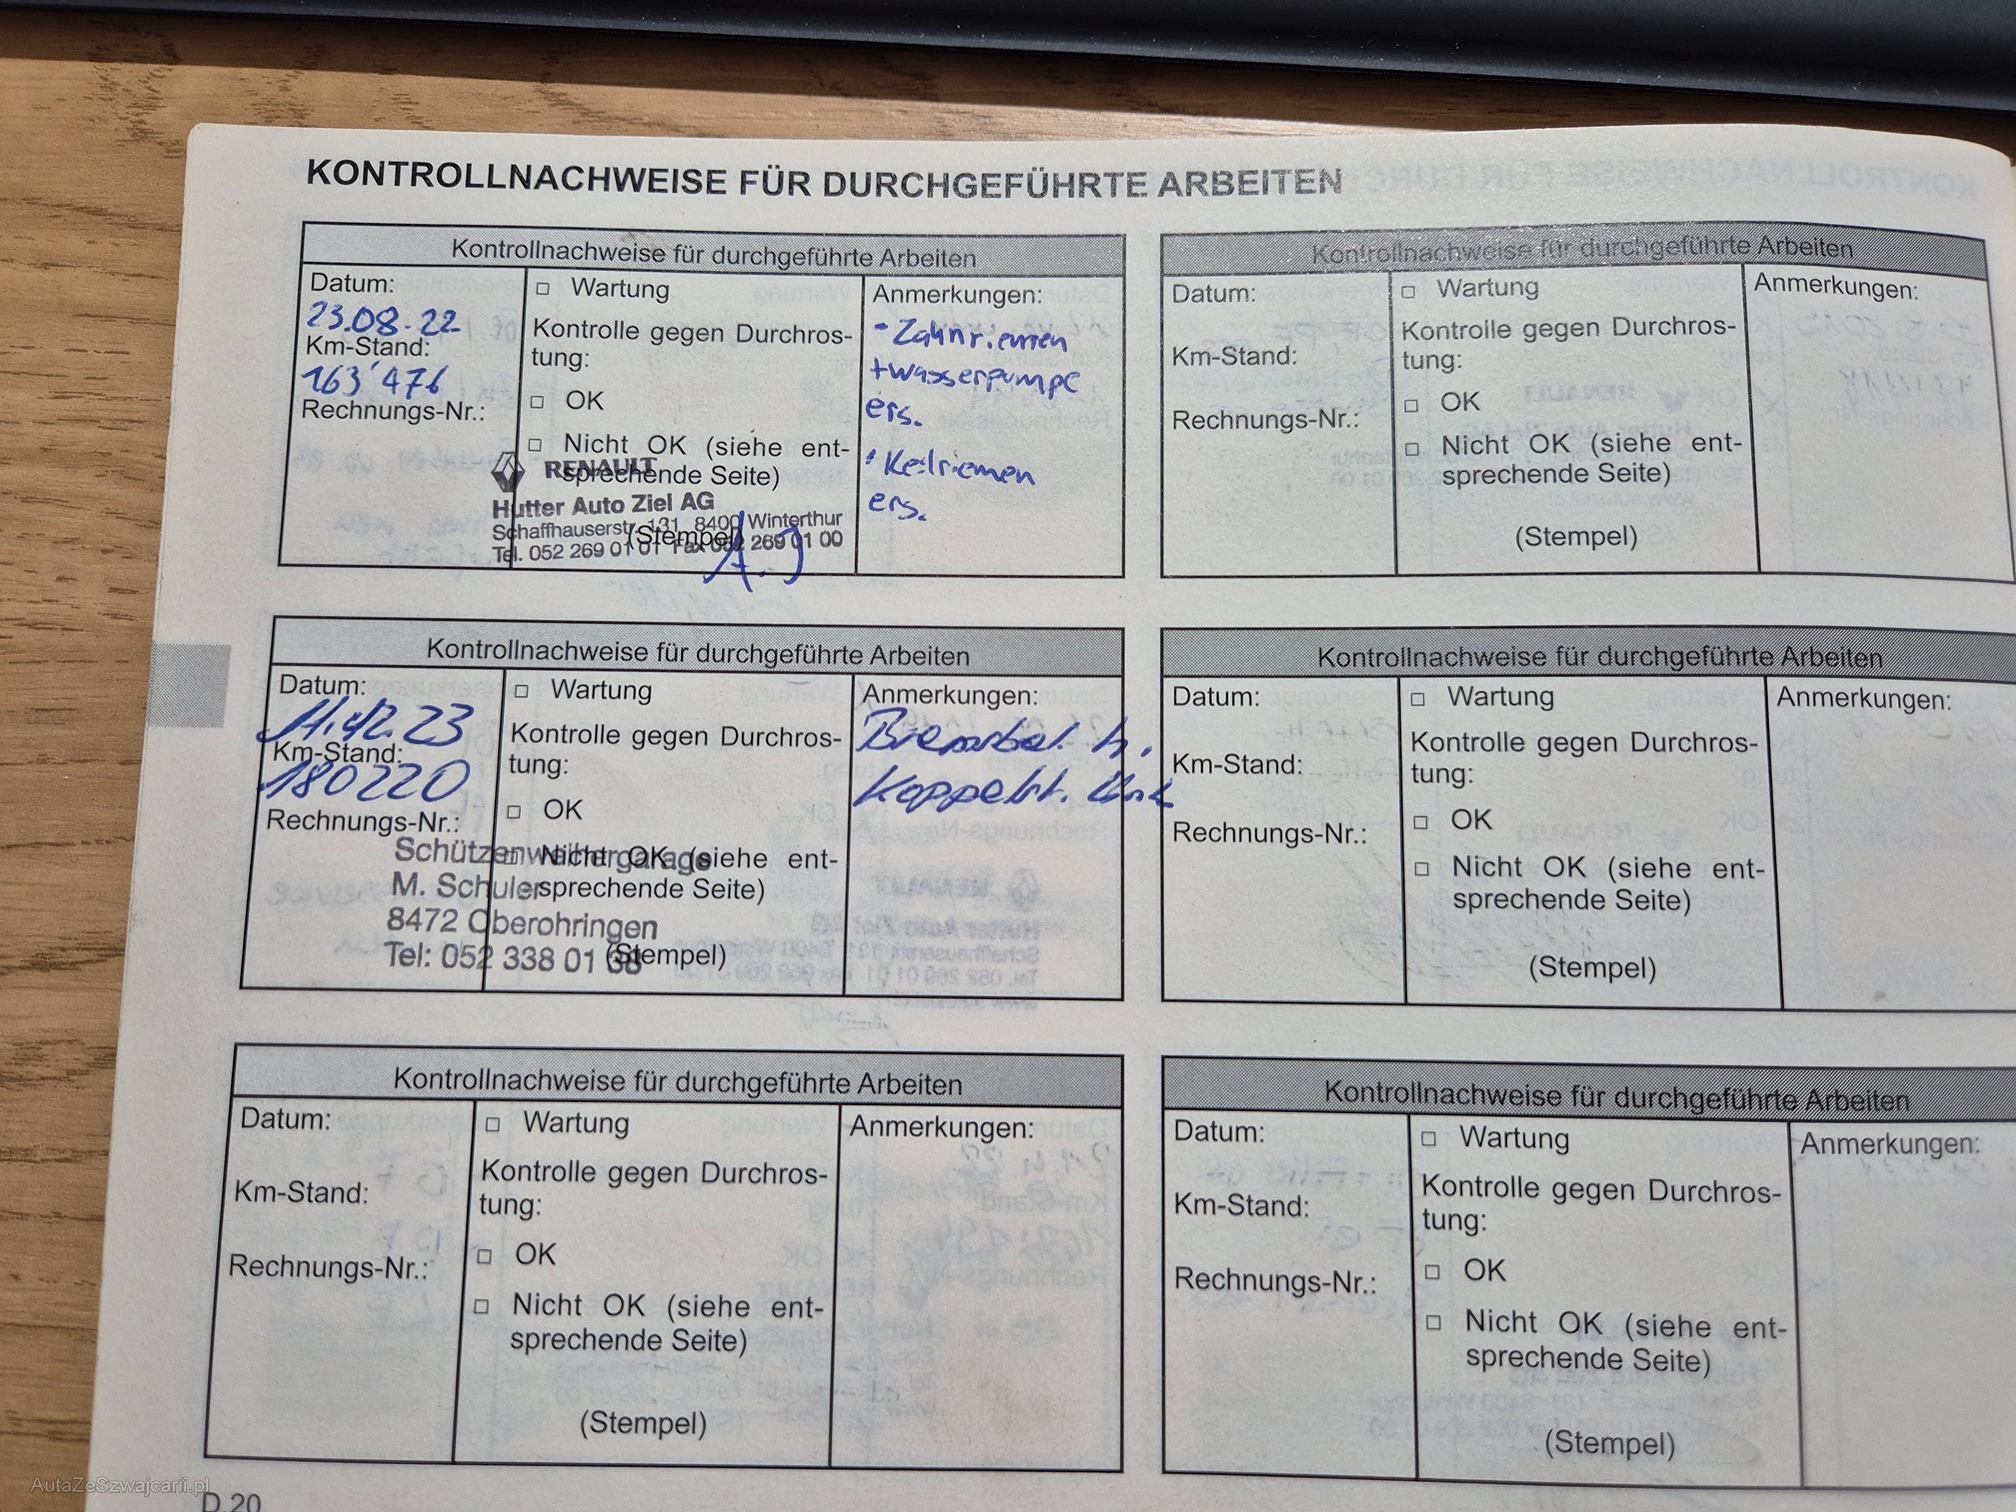 KONTROLLNACHWEISE FÜR DURCHGEFÜHRTE ARBEITEN
Kontrollnachweise für durchgeführte Arbeiten
Datum:
23.08.22
Km-Stand:
163'476
Rechnungs-Nr.:
□ Wartung
Kontrolle gegen Durchros-
tung:
□ OK
□ Nicht OK (siehe ent-
sprechende Seite)
(Stempel)
RENAULT
Hutter Auto Ziel AG
Schaffhauserstr. 131, 8400 Winterthur
Tel. 052 269 01 01 Fax 052 269 01 00
Anmerkungen:
- Zahnriemen
+wasserpumpe
ers.
Keilriemen
ers.
Kontrollnachweise für durchgeführte Arbeiten
Datum:
Km-Stand:
Rechnungs-Nr.:
□ Wartung
Kontrolle gegen Durchros-
tung:
□ OK
□ Nicht OK (siehe ent-
sprechende Seite)
(Stempel)
Anmerkungen:
Kontrollnachweise für durchgeführte Arbeiten
Datum:
11.12.23
Km-Stand:
180220
Rechnungs-Nr.:
□ Wartung
Kontrolle gegen Durchros-
tung:
□ OK
□ Nicht OK (siehe ent-
sprechende Seite)
(Stempel)
Schützenweihergarage
M. Schuler
8472 Oberohringen
Tel: 052 338 01 68
Anmerkungen:
h.
Kontrollnachweise für durchgeführte Arbeiten
Datum:
Km-Stand:
Rechnungs-Nr.:
□ Wartung
Kontrolle gegen Durchros-
tung:
□ OK
□ Nicht OK (siehe ent-
sprechende Seite)
(Stempel)
Anmerkungen:
Kontrollnachweise für durchgeführte Arbeiten
Datum:
Km-Stand:
Rechnungs-Nr.:
□ Wartung
Kontrolle gegen Durchros-
tung:
□ OK
□ Nicht OK (siehe ent-
sprechende Seite)
(Stempel)
Anmerkungen:
Kontrollnachweise für durchgeführte Arbeiten
Datum:
Km-Stand:
Rechnungs-Nr.:
□ Wartung
Kontrolle gegen Durchros-
tung:
□ OK
□ Nicht OK (siehe ent-
sprechende Seite)
(Stempel)
Anmerkungen:
D.20
AutaZeSzwajcarii.pl